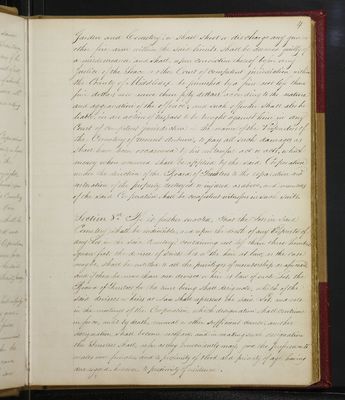 4
Garden and Cemetery, or shall shoot or discharge any gun or
other fire arm within the said limits shall be deemed guilty of
a misdemeanor and shall, upon conviction thereof before any
Justice of the Peace, or other Court of competent jurisdiction within
the County of Middlesex, be punished by a fine not less than
five dollars, nor more than fifty dollars, according to the nature
and aggravation of the offence; and such offender shall also be
liable, in an action of trespass to be brought against him in any
Court of competent jurisdiction in the name of the Proprietors of
the Cemetery of Mount Auburn, to pay all such damages as
shall have been occasioned by his unlawful act or acts, which
money when recovered shall be applied by the said Corporation
under the direction of the Board of Trustees to the reparation and
restoration of the property destroyed or injured as above, and members
of the said Corporation shall be competent witnesses in such suits.
Section 8th. Be it further enacted, That the lots in said
Cemetery shall be indivisible, and upon the death of any Proprietor of
any Lot in the said Cemetery containing not less than three hundred
square feet the devisee of said lot or the heir at law, as the case
may be, shall be entitled to all the privileges of membership as aforesaid;
and if there be more than one devisee or heir at law of such lot, the
Board of Trustees for the time being shall designate which of the
said devisees or heirs at law shall represent the said Lot, and vote
in the meetings of the Corporation, which designation shall continue
in force, until by death, removal or other sufficient cause, another
designation shall become necessary; and in making such designation
the Trustees shall, as far as they conveniently may, give the preference to
males over females, and to proximity of blood and priority of age, having
due regard however to proximity of residence.